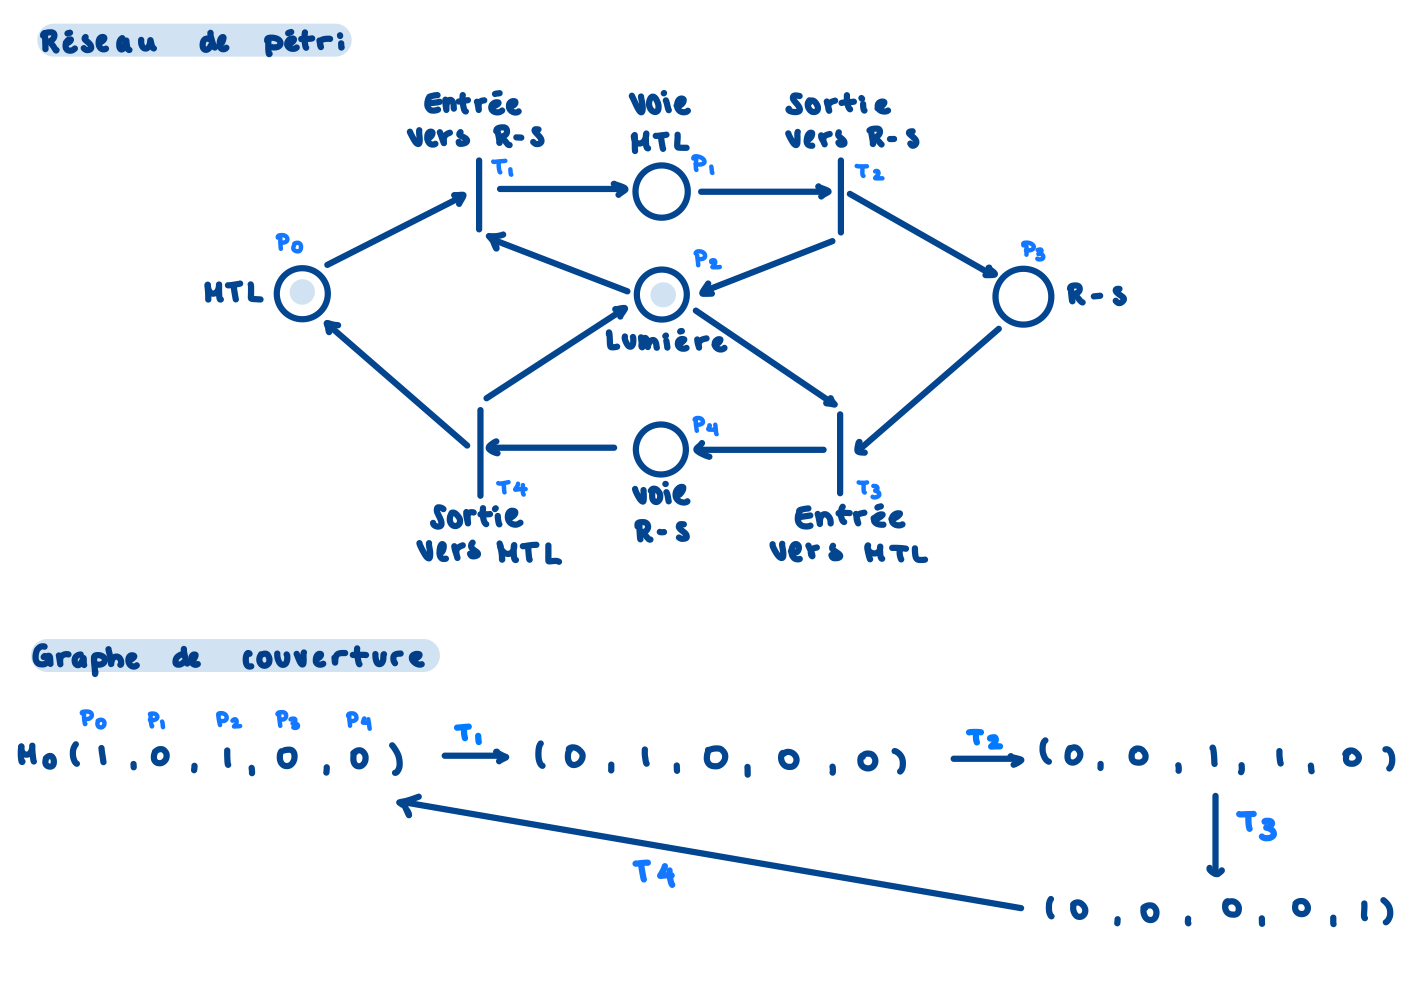 Réseau de pétri
Entrée
vers R-S
Voie
MTL
Sortie
vers R-S
T1
P1
T2
P0
MTL
P2
Lumière
P3
R-S
P4
T4
Sortie
vers MTL
Voie
R-S
T3
Entrée
vers MTL
Graphe de couverture
P0 P1 P2 P3 P4
M0 (1, 0, 1, 0, 0) T1 (0, 1, 0, 0, 0) T2 (0, 0, 1, 1, 0)
T3
T4
(0, 0, 0, 0, 1)